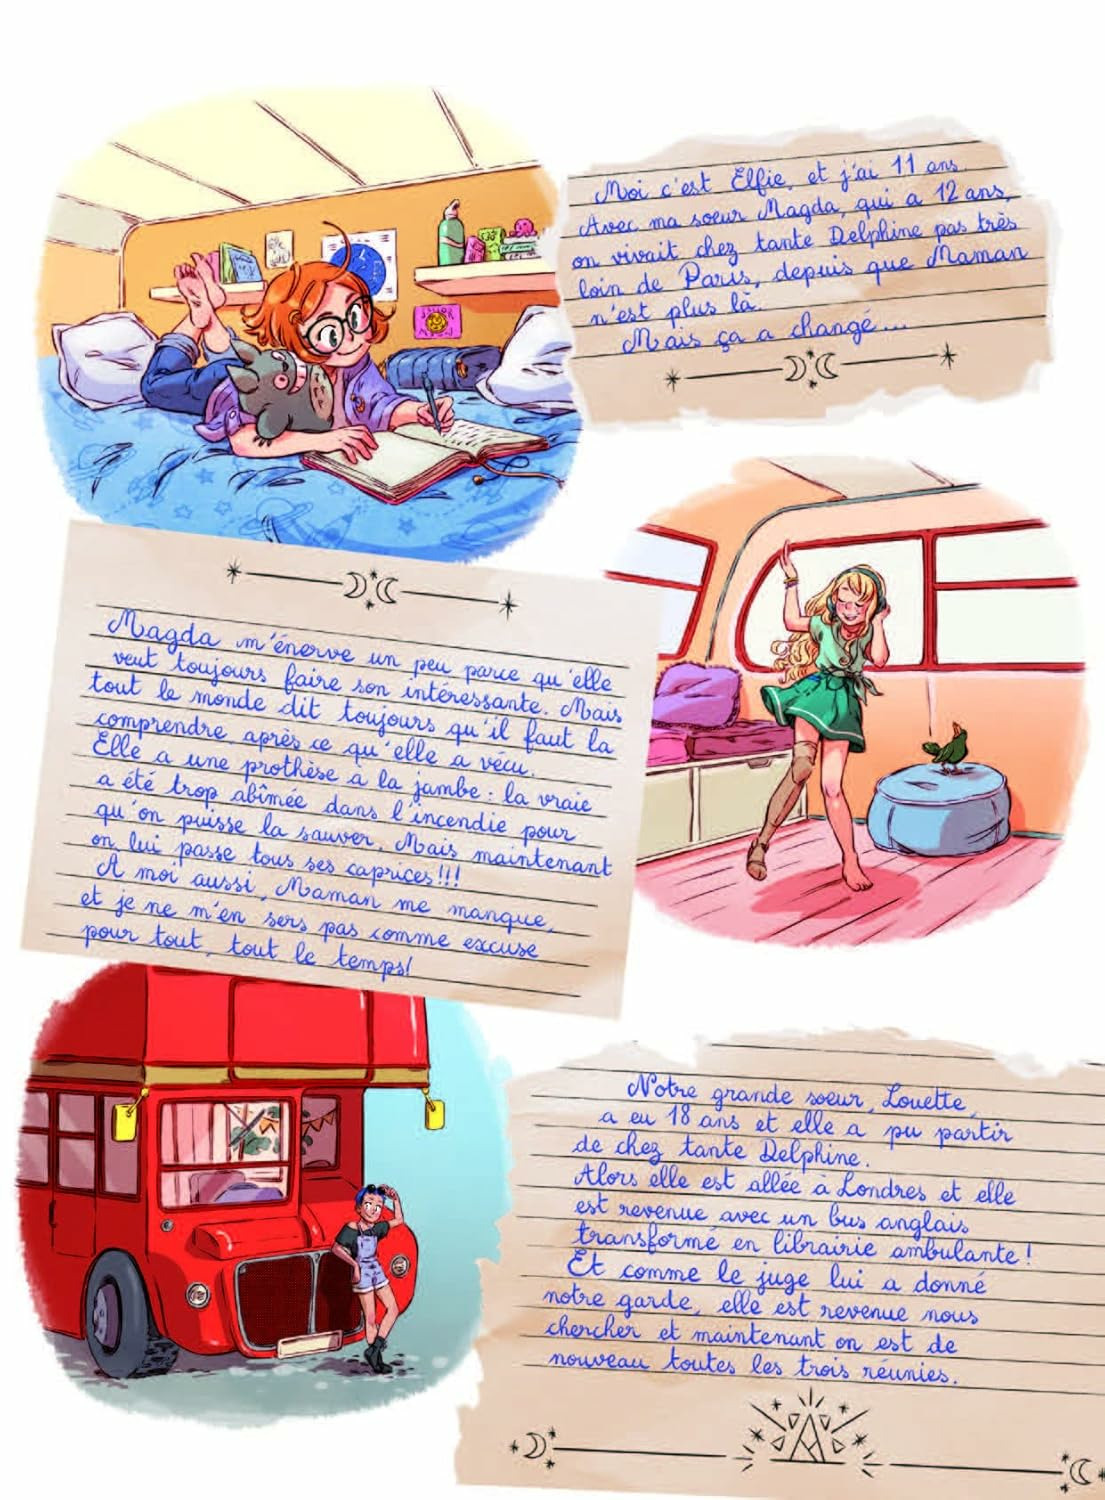 Moi c'est Elfie, et j'ai 11 ans.
Avec ma sœur Magda, qui a 12 ans,
on vivait chez tante Delphine pas très
loin de Paris, depuis que Maman
n'est plus là.
Mais ça a changé...
Magda m'énerve un peu parce qu'elle
veut toujours faire son intéressante. Mais
tout le monde dit toujours qu'il faut la
comprendre, après ce qu'elle a vécu.
Elle a une prothèse à la jambe : la vraie
a été trop abîmée dans l'incendie pour
qu'on puisse la sauver. Mais maintenant
on lui passe tous ses caprices !!!
À moi aussi, Maman me manque,
et je ne m'en sers pas comme excuse
pour tout, tout le temps!
Notre grande sœur, Louette,
a eu 18 ans et elle a pu partir
de chez tante Delphine.
Alors elle est allée à Londres et elle
est revenue avec un bus anglais
transformé en librairie ambulante !
Et comme le juge lui a donné
notre garde, elle est revenue nous
chercher et maintenant on est de
nouveau toutes les trois réunies.